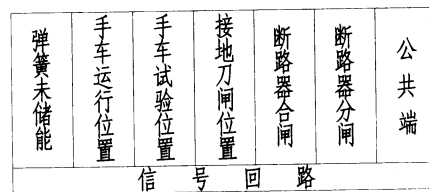 弹簧未储能
手车运行位置
手车试验位置
接地刀闸位置
断路器合闸
断路器分闸
公共端
信号回路